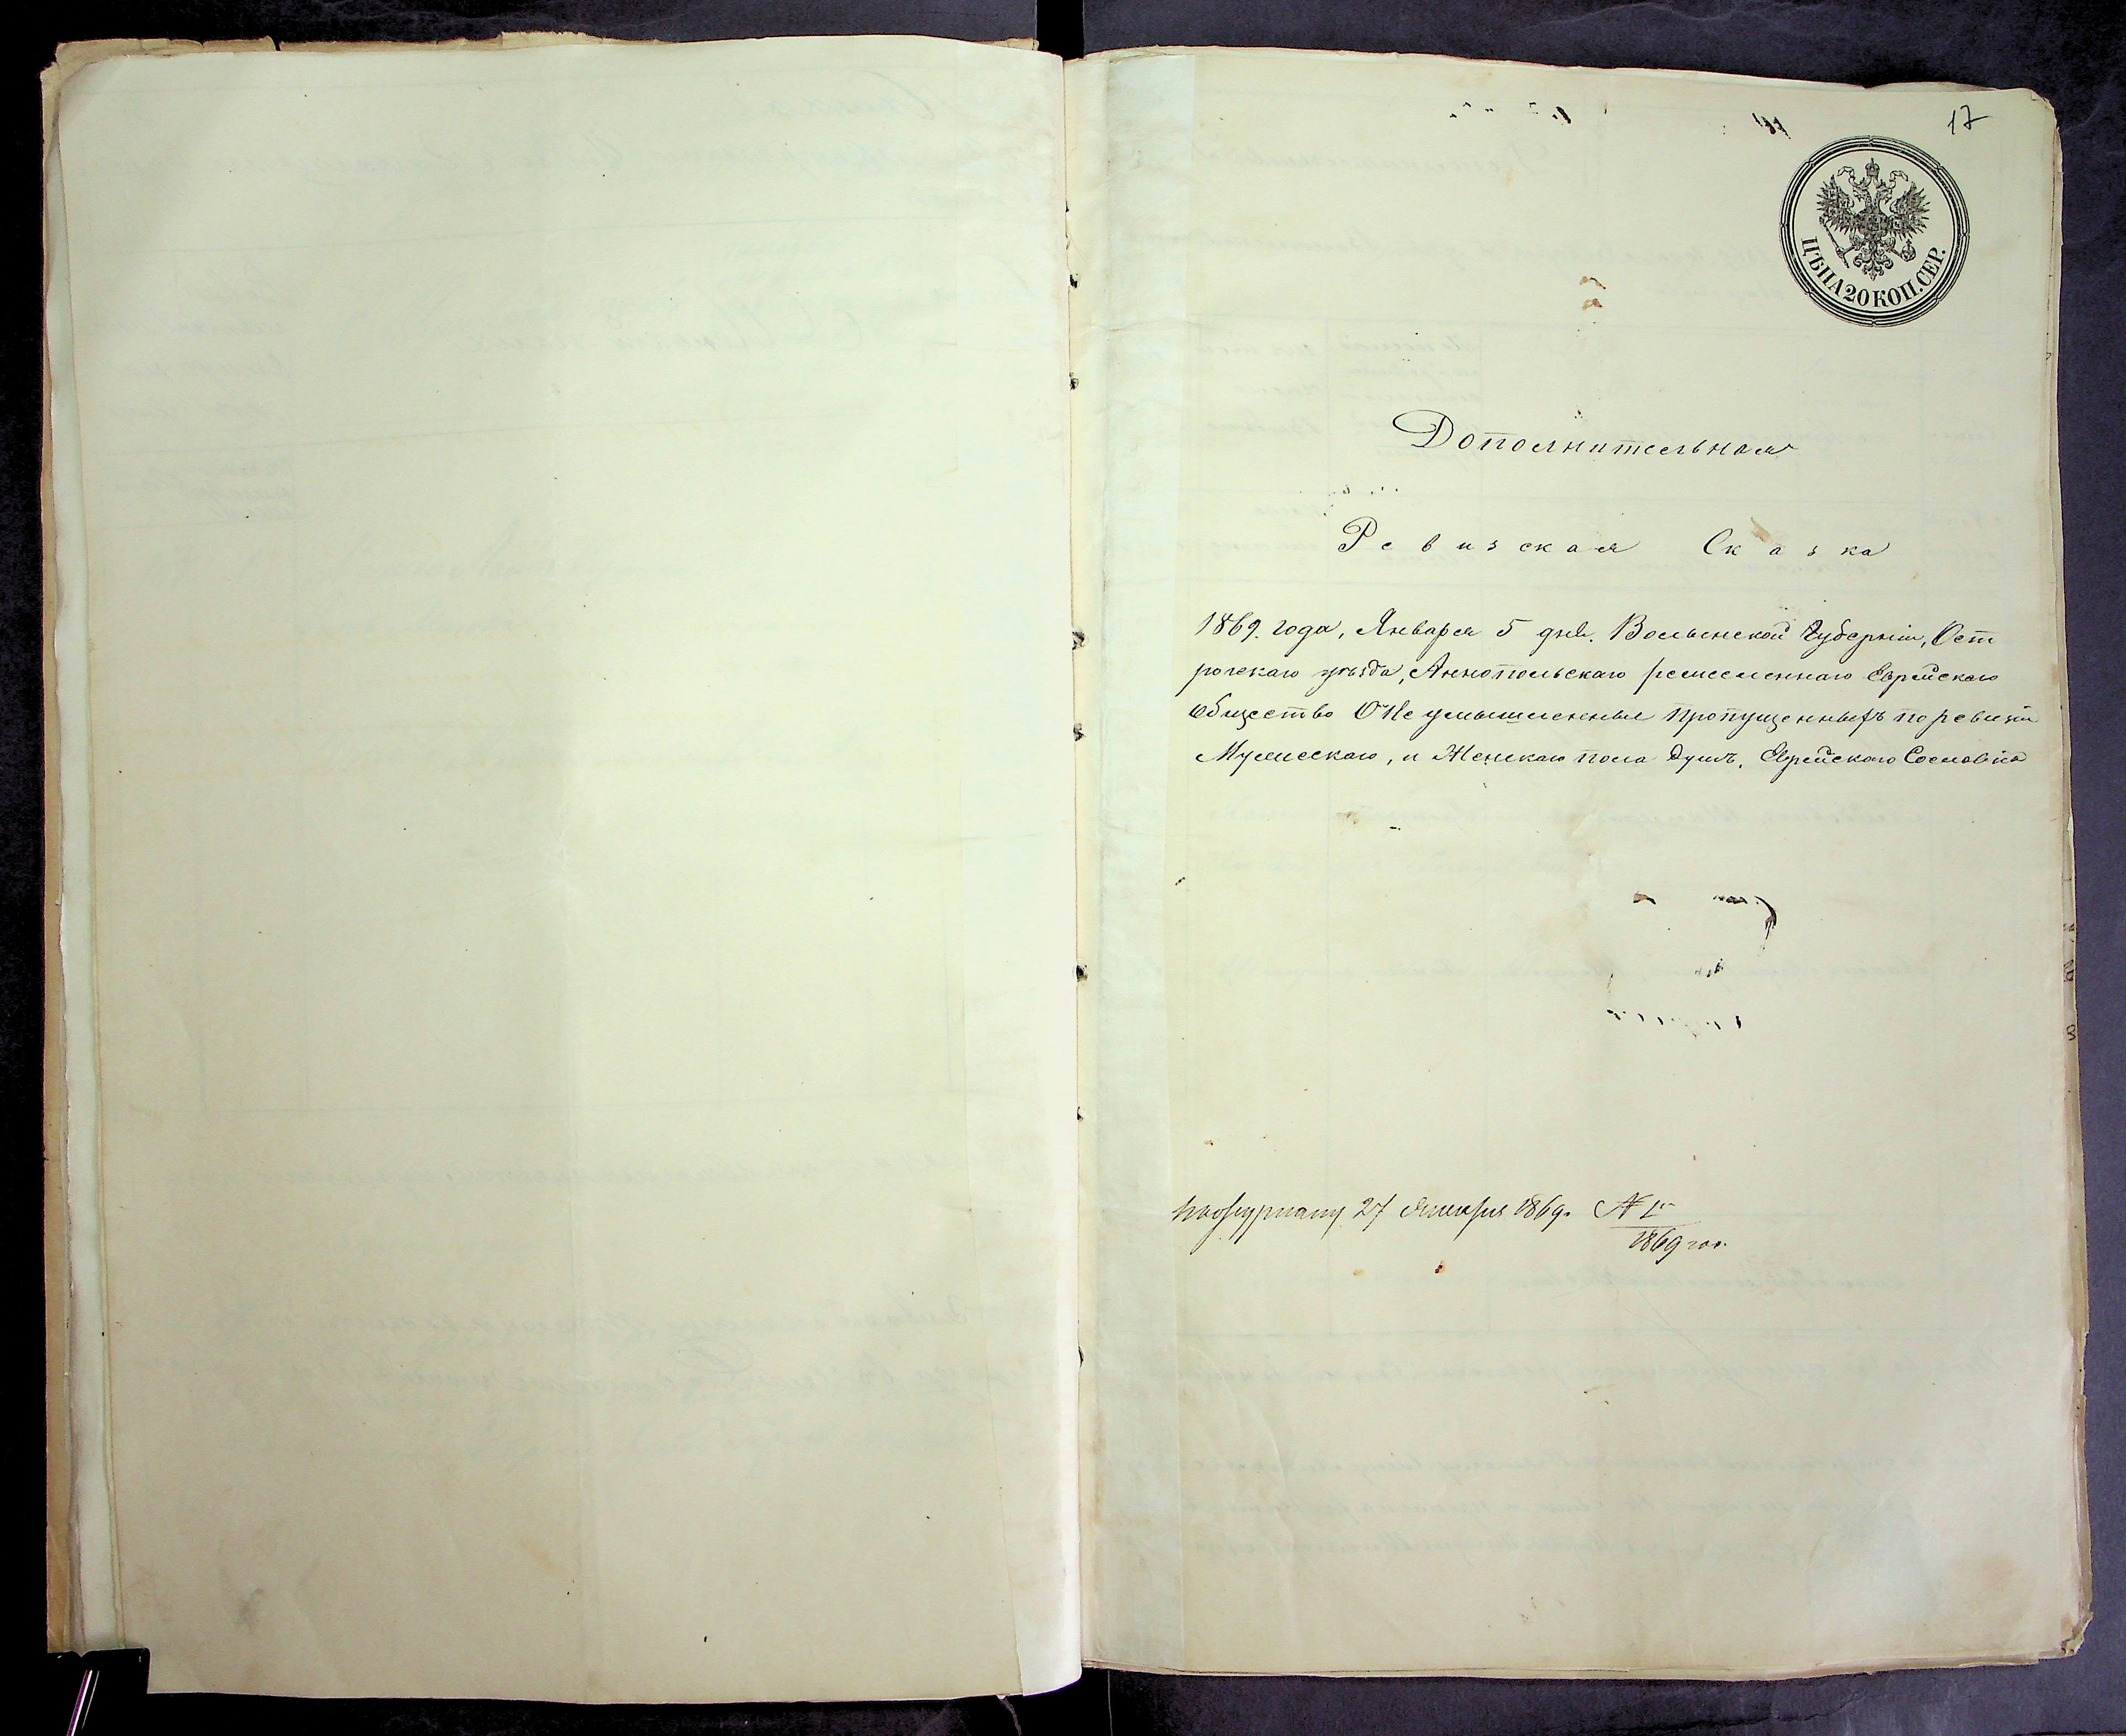 17
ЦѢНА 20 КОП. СЕР.
Дополнительная
Ревизская Сказка
1869. года, Января 5 дня. Волынской Губерніи, Ост
рогскаго уѣзда, Аннопольскаго ремесленнаго Еврейскаго
Общество О Не умышленные пропущенныхъ по ревизіи
Мужескаго, и Женскаго пола душъ. Еврейскаго Сословія
27 Января 1869. № 1
1869 год.